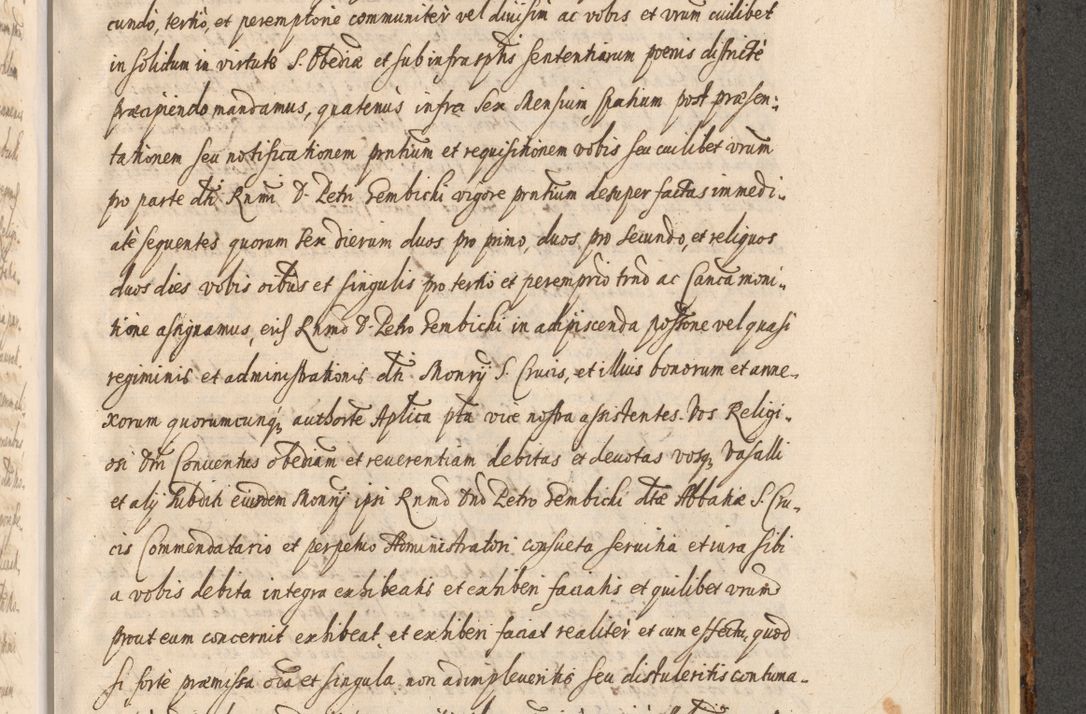 cundò, tertiò, et peremptorie communiter vel divisim ac vobis et vrum cuilibet
in solidum in virtute S. Obediæ et sub infrasptis sententiarum poenis districtè
præcipiendo mandamus, quatenus infra sex Mensium spatium post præsen-
tationem seu notificationem pntium et requisitionem vobis seu cuilibet vrum
pro parte dti Rnmi D. Petri Gembichi vigore pntium desuper factas immedi-
atè sequentes quorum sex dierum duos pro primo, duos pro secundo, et reliquos
duos dies vobis oibus et singulis pro tertio et peremprio trno ac Canca moni-
tione assignamus, eisd Rnmo D. Petro Gembichi in adipiscenda possone vel quasi
regiminis et administrationis dti Monrij S. Crucis, et illius bonorum et anne-
xorum quorumcunq, authorte Aplica pta vice nostra assistentes. Vos Religi-
osi dni Conventus obediam et reverentiam debitas et devotas vosq, Vasalli
et alij subditi eiusdem Monrij ipsi Rnmo Dno Petro Gembichi dtæ Abbatiæ S. Cru-
cis Commendatario et perpetuo Administratori consueta servitia et iura sibi
a vobis debita integra exhibeatis et exhiberi faciatis et quilibet vrum
prout eum concernit exhibeat et exhiberi faciat realiter et cum effectu, quod
si forte præmissa oia et singula non adimpleveritis seu distuleritis contuma-